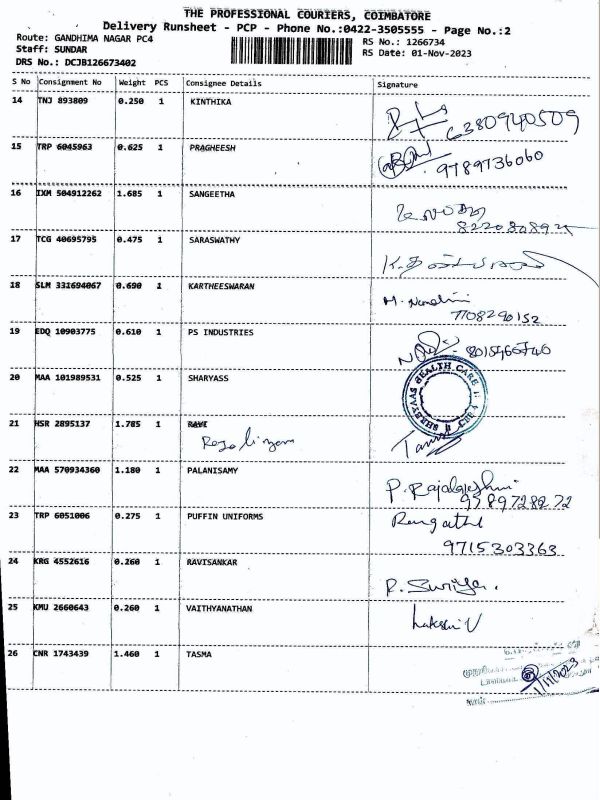 THE PROFESSIONAL COURIERS, COIMBATORE
Delivery Runsheet - PCP - Phone No.:0422-3505555 - Page No.:2
Route: GANDHIMA NAGAR PC4
RS No.: 1266734
Staff: SUNDAR
RS Date: 01-Nov-2023
DRS No.: DCJB126673402
S No Consignment No Weight PCS Consignee Details Signature
14 TNJ 893809 0.250 1 KINTHIKA
6380940509
15 TRP 6045963 0.625 1 PRAGHEESH
9789736060
16 IXM 504912262 1.685 1 SANGEETHA
17 TCG 40695795 0.475 1 SARASWATHY
18 SLM 331694067 0.690 1 KARTHEESWARAN
M. Nandini
7708290152
19 EDQ 10903775 0.610 1 PS INDUSTRIES
20 MAA 101989531 0.525 1 SHARYASS
SHREYAAS HEALTH CARE
21 HSR 2895137 1.785 1 RAVI
22 MAA 570934360 1.180 1 PALANISAMY
P. Rajalakshmi
9789728272
23 TRP 6051006 0.275 1 PUFFIN UNIFORMS
9715303363
24 KRG 4552616 0.260 1 RAVISANKAR
R. Suriya.
25 KMU 2660643 0.260 1 VAITHYANATHAN
26 CNR 1743439 1.460 1 TASMA
1/11/2023